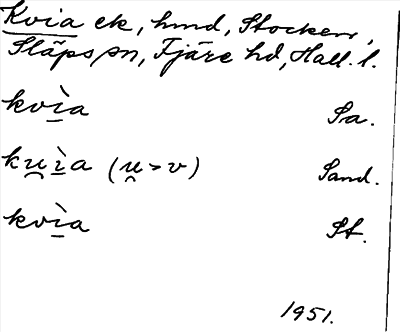 Kvia ek, hmd, Stocken,
Släps sn, Fjäre hd, Hall. l.
kvì̲a Sa.
ku̯ì̲a (u̯ > v) Sand.
kvì̲a St.
1951.